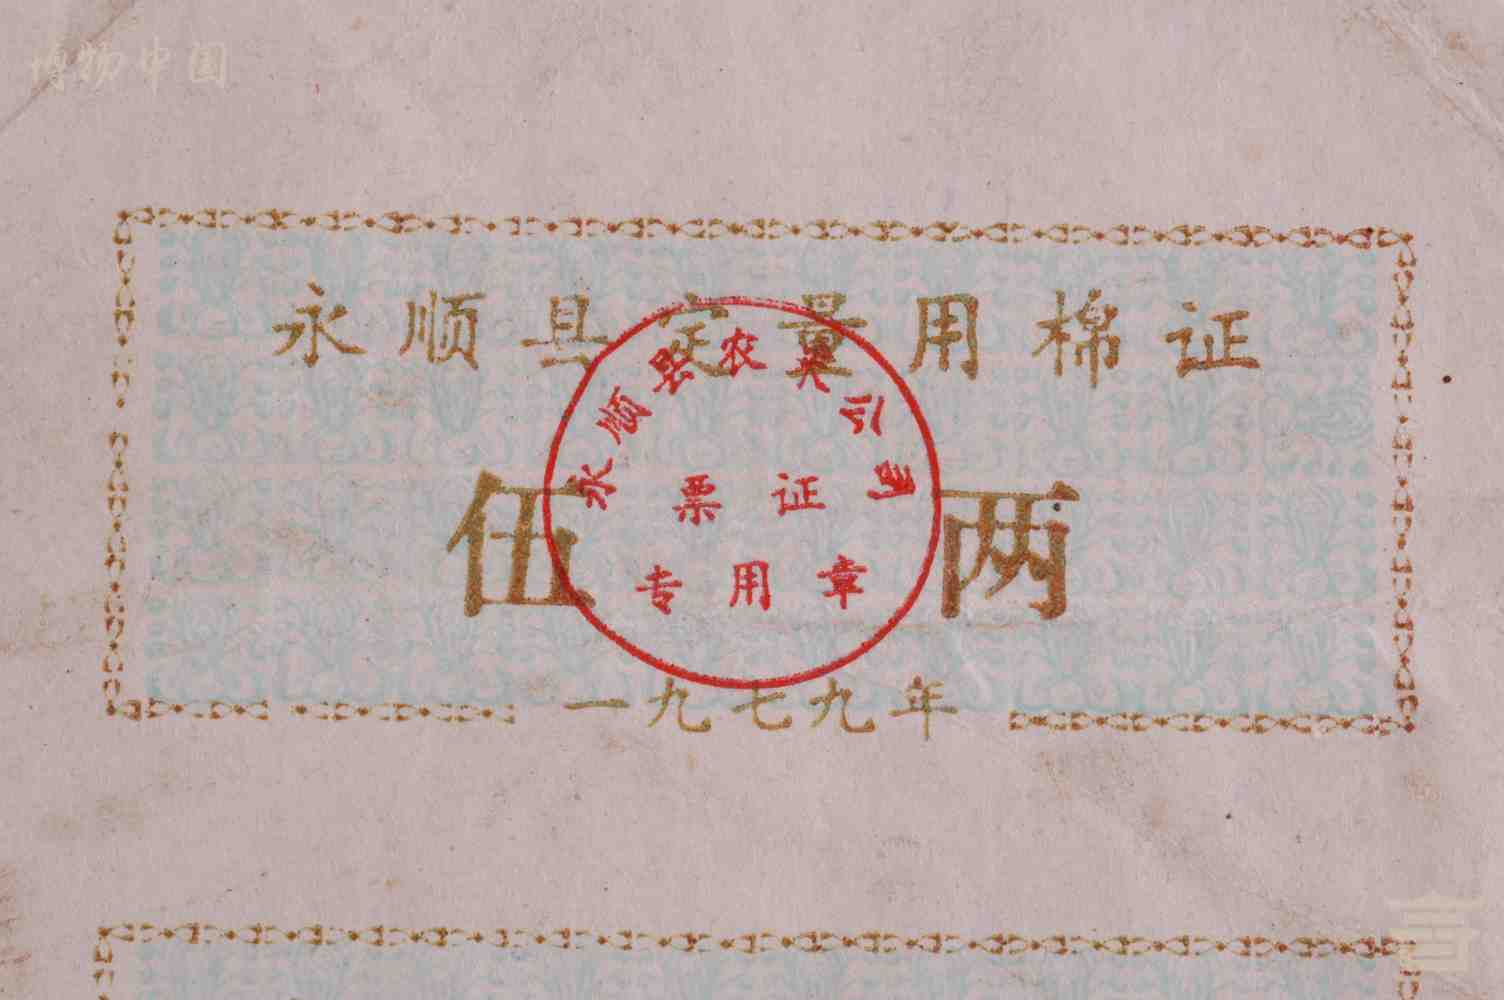 博物中国
永顺县定量用棉证
伍两
一九七九年
永顺县农 公
票证
专用章